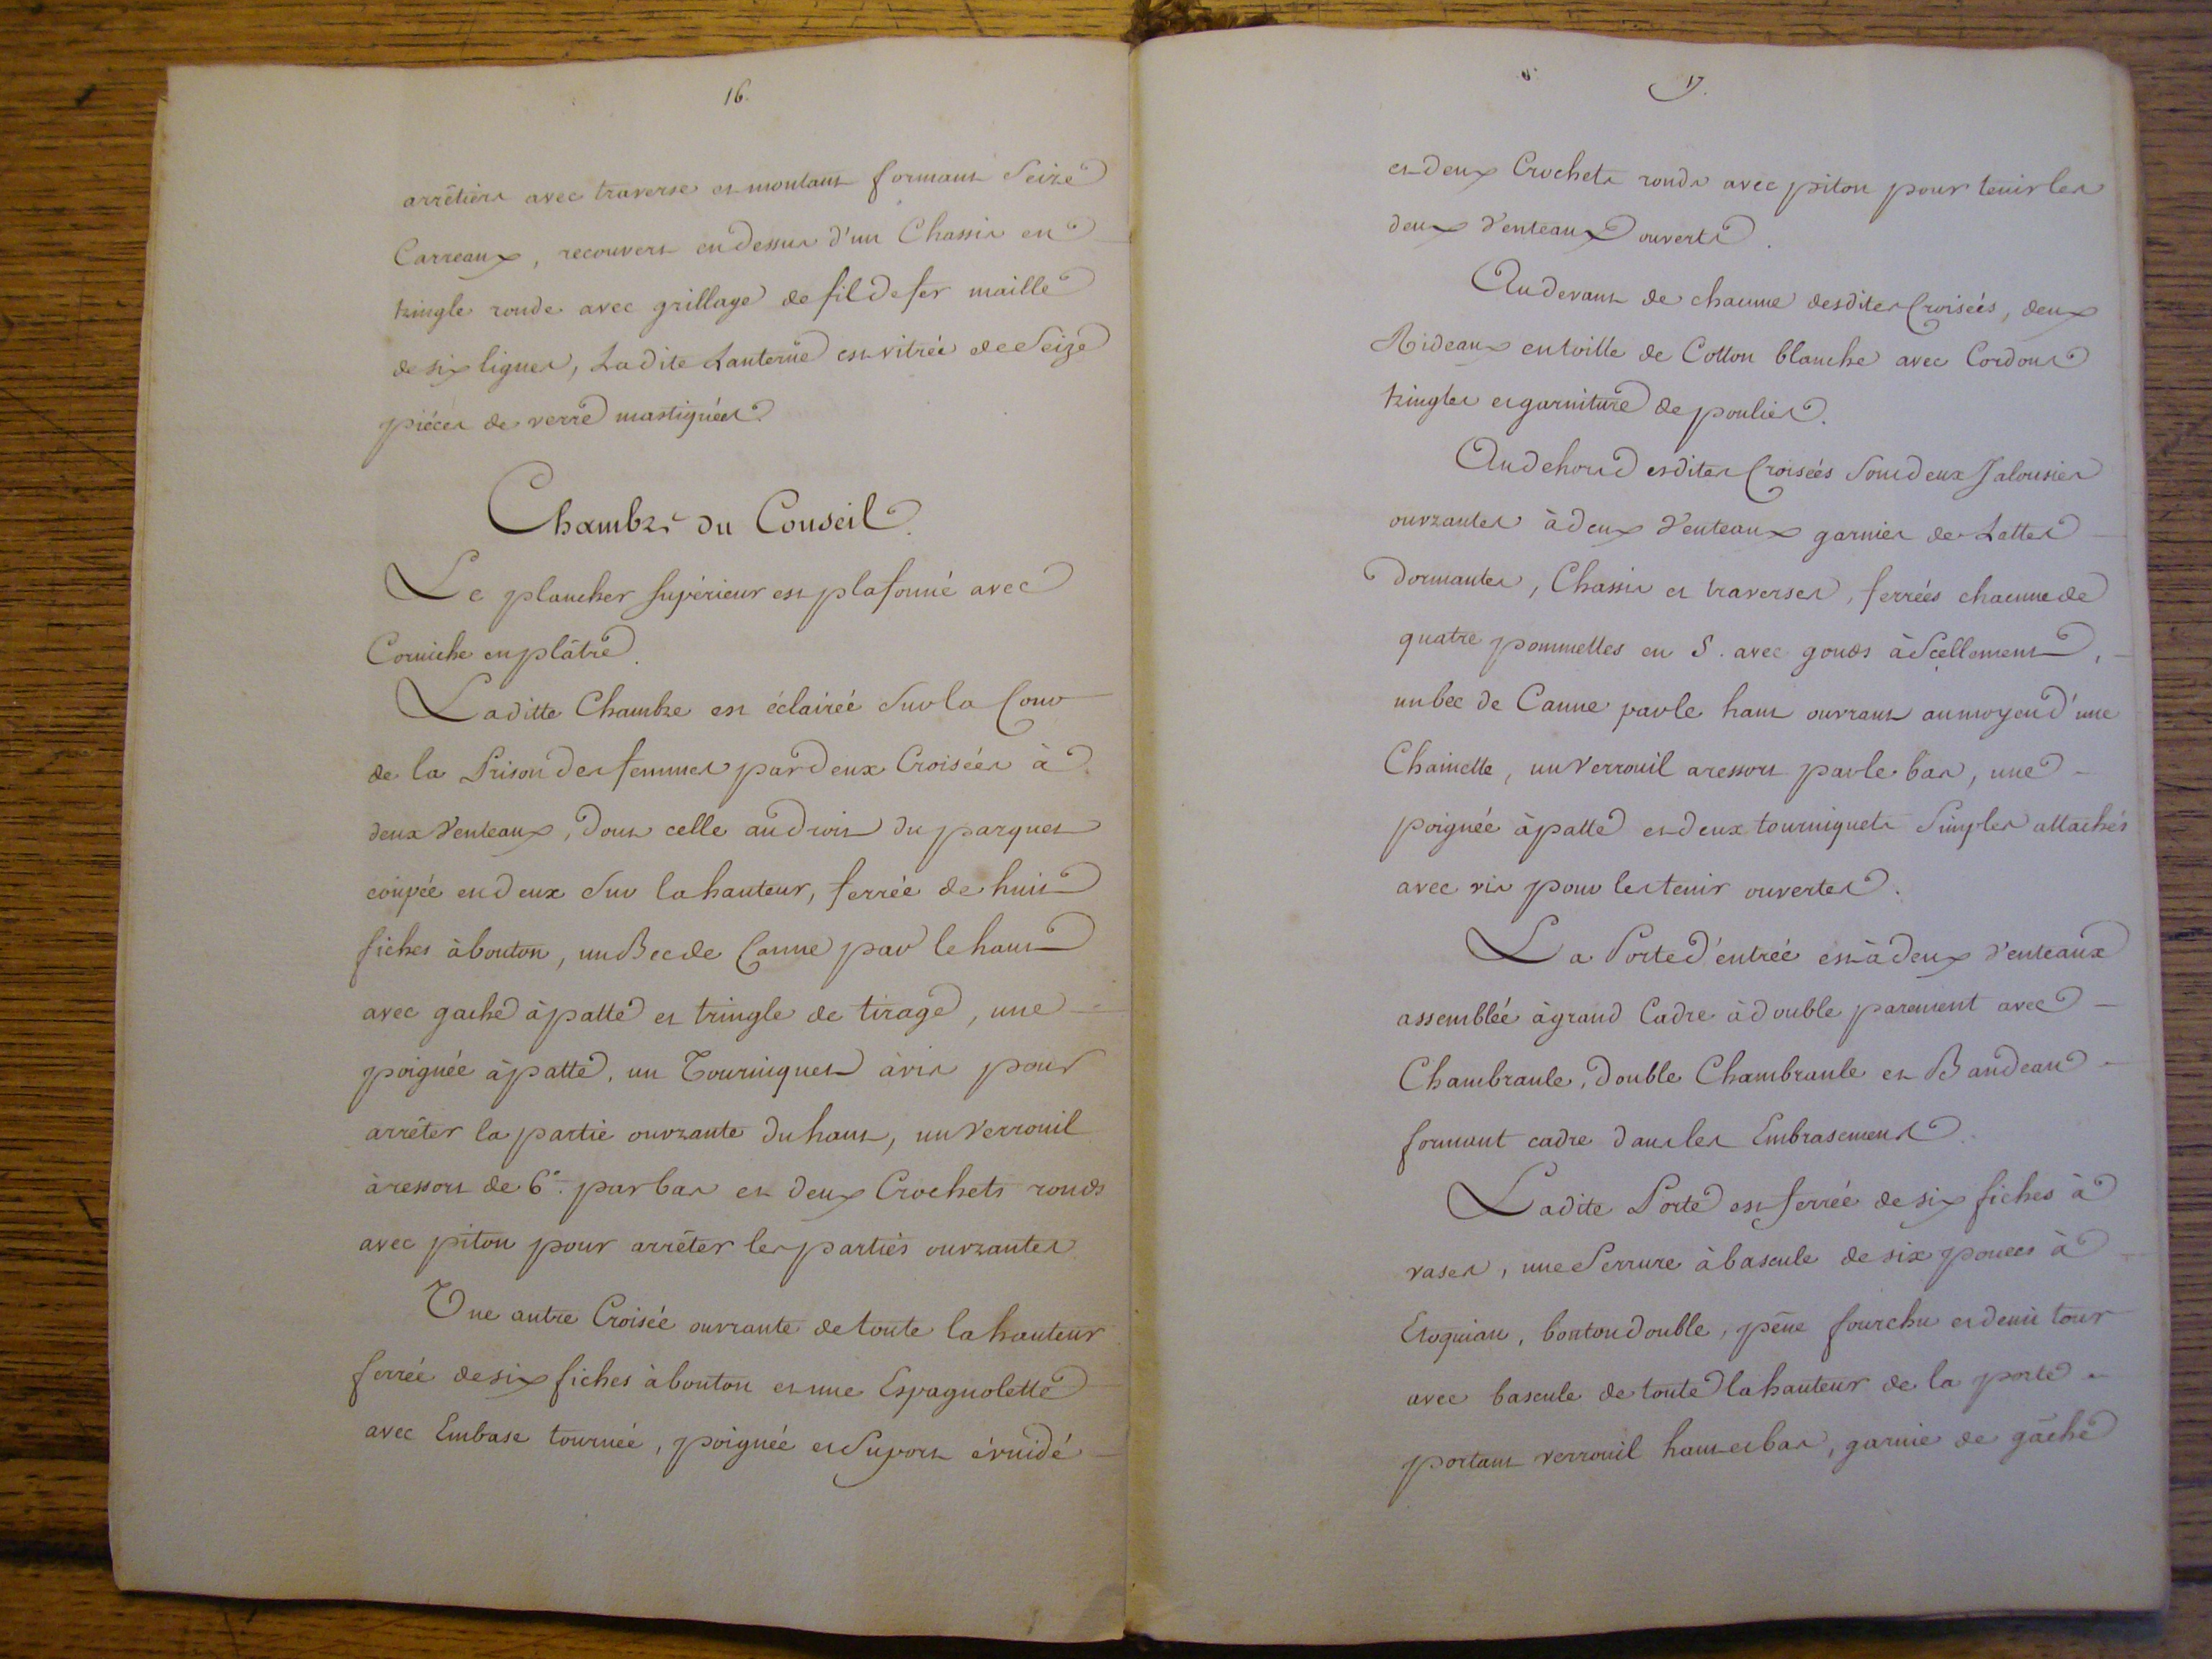 16.
arrêtiers avec traverse et montant formant Seize
Carreaux, recouvert en dessus d'un Chassis en
tringle ronde avec grillage de fil de fer maille
de six lignes, Ladite Lanterne est vitrée de Seize
piéces de verre mastiquées.
Chambre du Conseil.
Le plancher supérieur est plafonné avec
Corniche en plâtre.
Laditte Chambre est éclairée Sur la Cour
de la Prison des femmes par deux Croisées à
deux Venteaux, dont celle au droit du parquet
coupée en deux Sur la hauteur, ferrée de huit
fiches à bouton, un Bec de Canne par le haut
avec gache à patte et tringle de tirage, une
poignée à patte, un Tourniquet à vis pour
arrêter la partie ouvrante du haut, un Verrouil
à ressort de 6° par bas et deux Crochets ronds
avec piton pour arrêter les parties ouvrantes
Une autre Croisée ouvrante de toute la hauteur
ferrée de six fiches à bouton et une Espagnolette
avec Embase tournée, poignée et Suport évuidé
17.
et deux Crochets ronds avec piton pour tenir les
deux Venteaux ouverts.
Au devant de chacune desdites Croisées, deux
Rideaux en toille de Cotton blanche avec Cordons
tringles et garniture de poulies.
Au dehors desdites Croisées Sont deux Jalousies
ouvrantes à deux Venteaux garnies de Lattes
dormantes, Chassis et traverses, ferrées chacune de
quatre pommelles en S. avec gonds à Scellement,
un bec de Canne par le haut ouvrant au moyen d'une
Chainette, un Verrouil a ressort par le bas, une
poignée à patte et deux tourniquets Simples attachés
avec vis pour les tenir ouvertes.
La Porte d'entrée est à deux Venteaux
assemblée à grand Cadre à double parement avec
Chambranle, double Chambranle et Bandeau
formant cadre dans les Embrasements.
Ladite Porte est ferrée de six fiches à
vases, une Serrure à bascule de six pouces à
Etoquiau, bouton double, pêne fourchu et demi tour
avec bascule de toute la hauteur de la porte
portant verrouil haut et bas, garnie de gâche